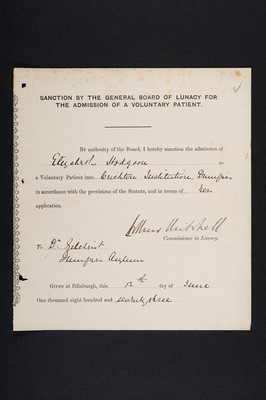 SANCTION BY THE GENERAL BOARD OF LUNACY FOR
THE ADMISSION OF A VOLUNTARY PATIENT.
BY authority of the Board, I hereby sanction the admission of
Elizabeth Hodgson as
a Voluntary Patient into Crichton Institution, Dumfries
in accordance with the provisions of the Statute, and in terms of her
application.
Arthur Mitchell
Commissioner in Lunacy.
To Dr Gilchrist
Dumfries Asylum
GIVEN at Edinburgh, this 12th day of June
One thousand eight hundred and seventy three